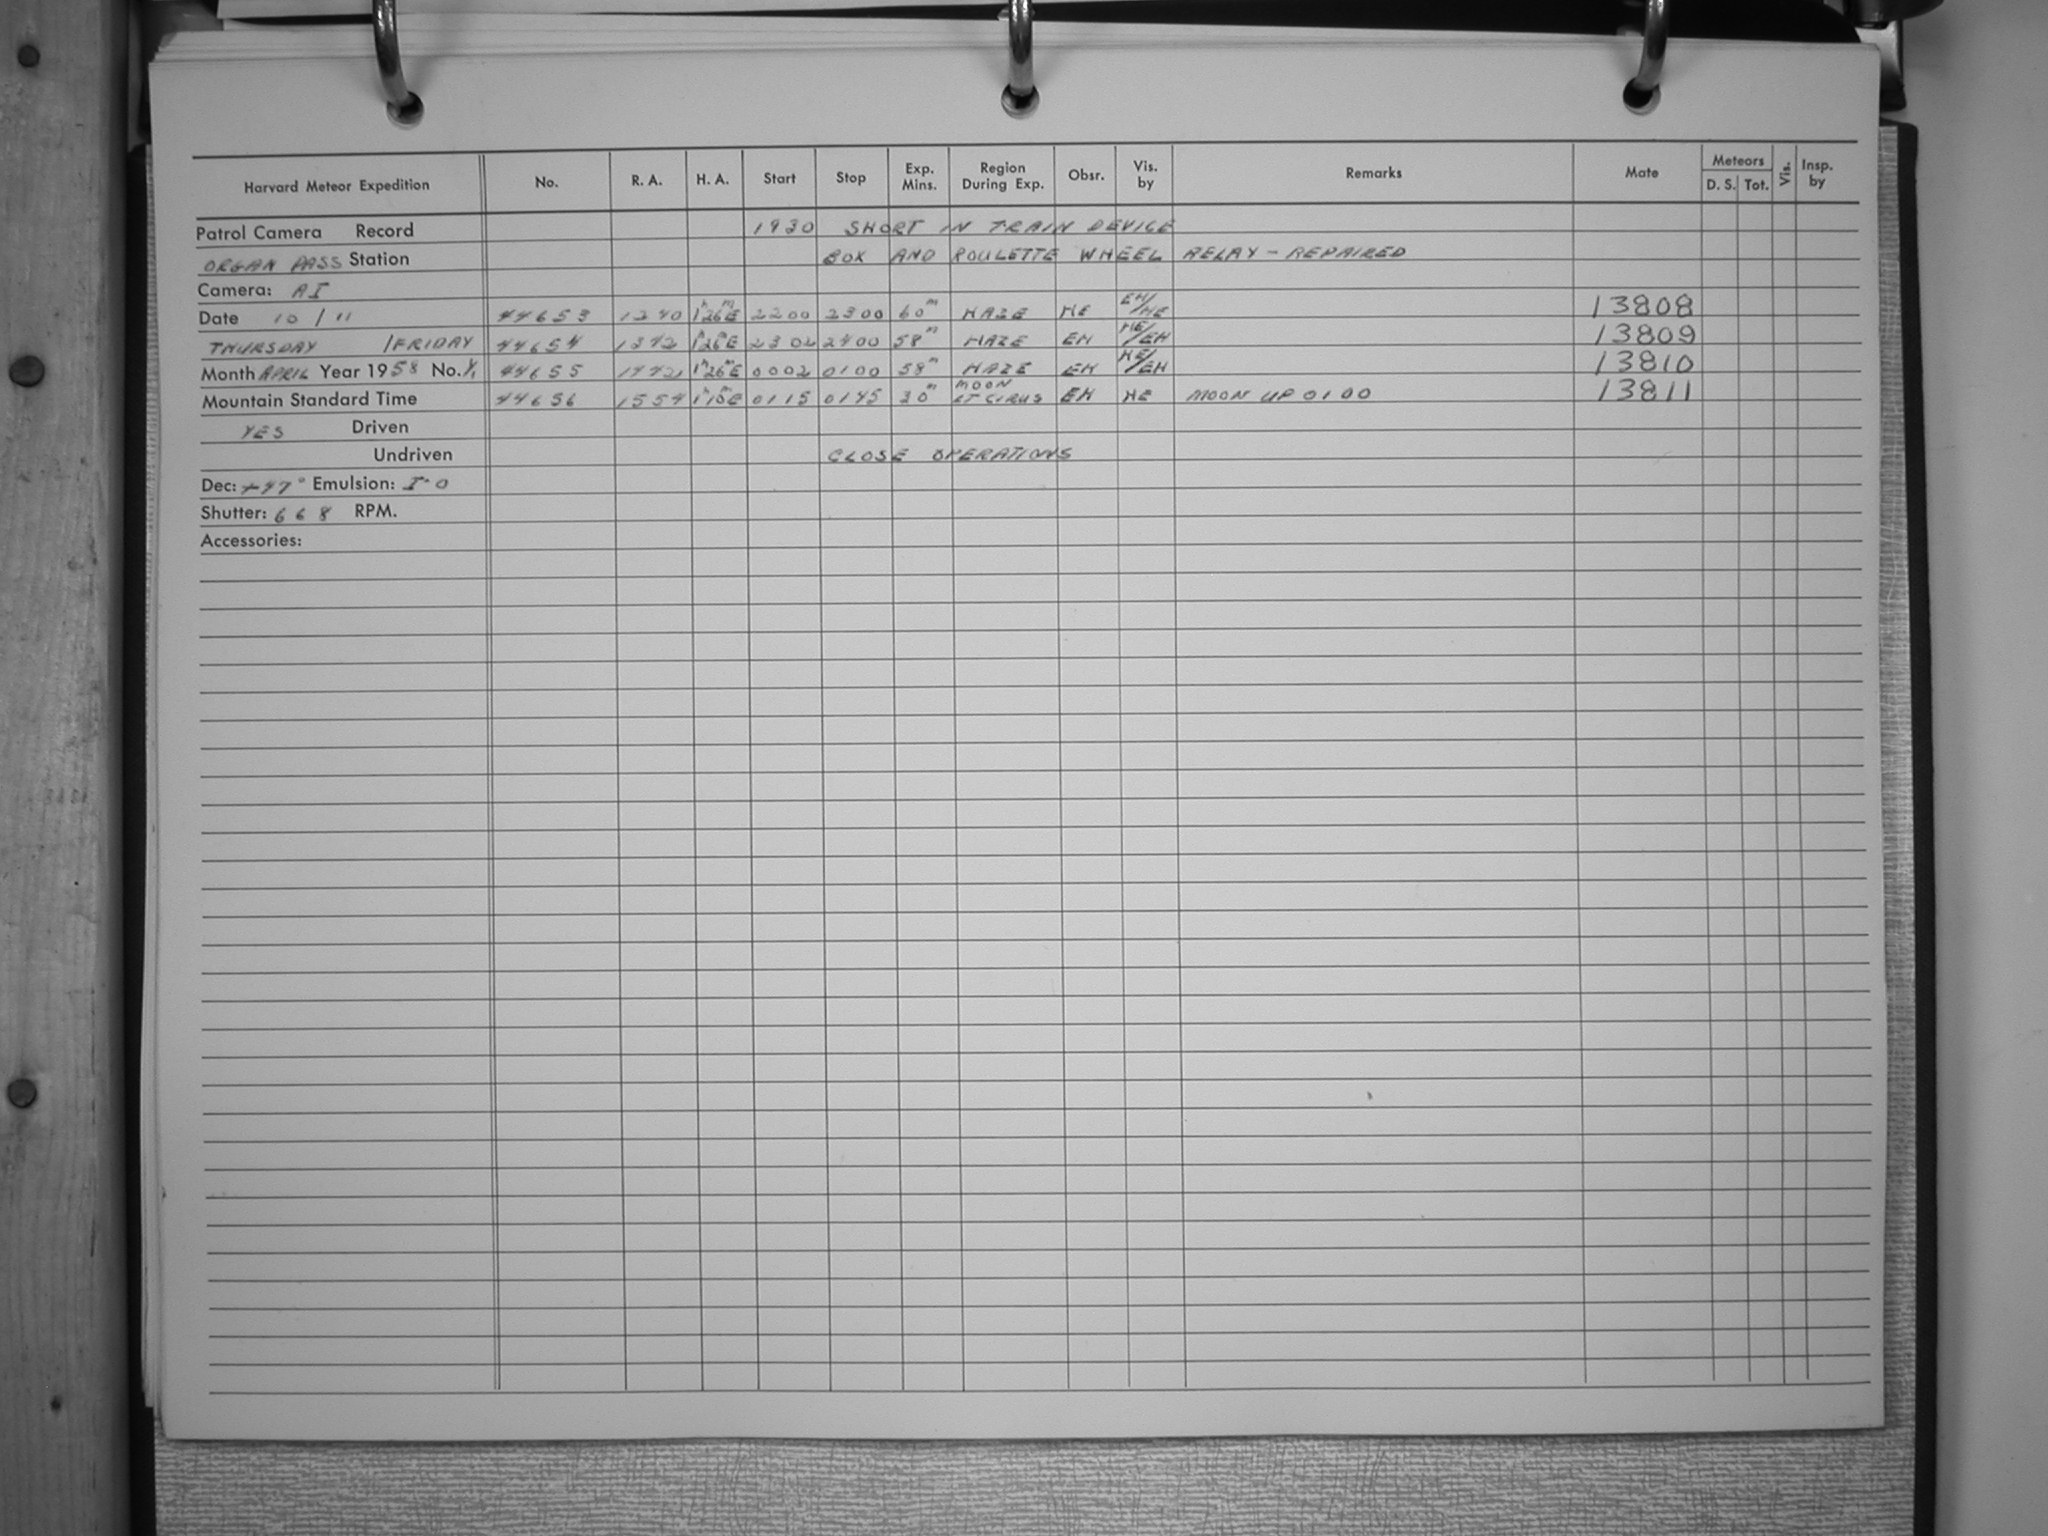 Harvard Meteor Expedition No. R. A. H. A. Start Stop Exp. Mins. Region During Exp. Obsr. Vis. by Remarks Mate Meteors D. S. Tot. Vis. Insp. by
Patrol Camera Record 1930 SHORT IN TRAIN DEVICE
ORGAN PASS Station BOX AND ROULETTE WHEEL RELAY - REPAIRED
Camera: AI
Date 10 / 11 44653 1240 1h26mE 2200 2300 60m HAZE HE EH/HE 13808
THURSDAY /FRIDAY 44654 1342 1h26mE 2302 2400 58m HAZE EH HE/EH 13809
Month APRIL Year 1958 No. 1/1 44655 1442 1h26mE 0002 0100 58m HAZE EH HE/EH 13810
Mountain Standard Time 44656 1554 1h15mE 0115 0145 30m MOON LT CIRUS EH HE MOON UP 0100 13811
YES Driven
Undriven CLOSE OPERATIONS
Dec: +47° Emulsion: I-0
Shutter: 668 RPM.
Accessories: